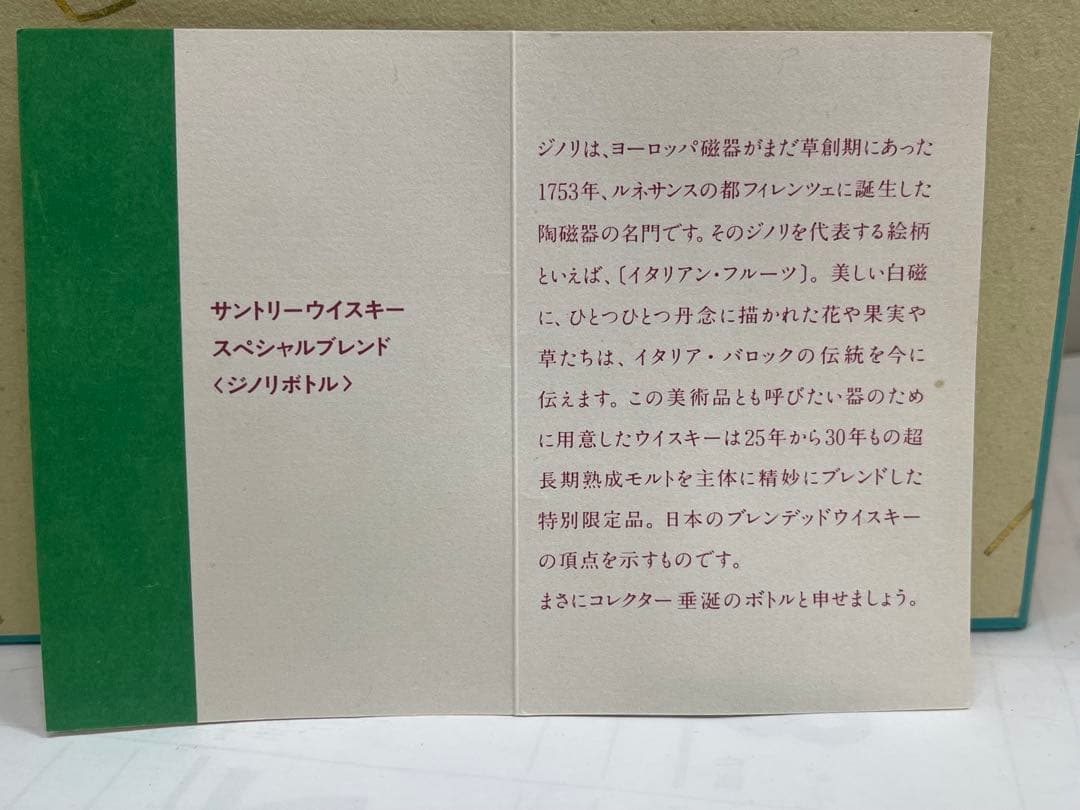 サントリーウイスキー
スペシャルブレンド
〈ジノリボトル〉
ジノリは、ヨーロッパ磁器がまだ草創期にあった
1753年、ルネサンスの都フィレンツェに誕生した
陶磁器の名門です。そのジノリを代表する絵柄
といえば、〔イタリアン・フルーツ〕。美しい白磁
に、ひとつひとつ丹念に描かれた花や果実や
草たちは、イタリア・バロックの伝統を今に
伝えます。この美術品とも呼びたい器のため
に用意したウイスキーは25年から30年もの超
長期熟成モルトを主体に精妙にブレンドした
特別限定品。日本のブレンデッドウイスキー
の頂点を示すものです。
まさにコレクター垂涎のボトルと申せましょう。